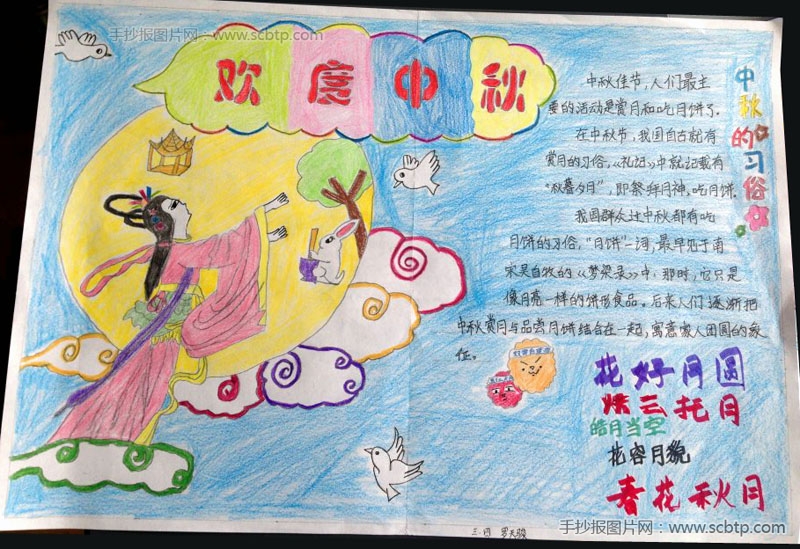 手抄报图片网：www.scbtp.com
欢度中秋
中秋的习俗
中秋佳节，人们最主
要的活动是赏月和吃月饼了。
在中秋节，我国自古就有
赏月的习俗，《礼记》中就记载有
“秋暮夕月”，即祭拜月神，吃月饼.
我国群众过中秋都有吃
月饼的习俗，“月饼”一词，最早见于南
宋吴自牧的《梦梁录》中，那时，它只是
像月亮一样的饼形食品。后来人们逐渐把
中秋赏月与品尝月饼结合在一起，寓意家人团圆的象
征。
花好月圆
烘云托月
皓月当空
花容月貌
春花秋月
手抄报图片网：www.scbtp.com
三.四